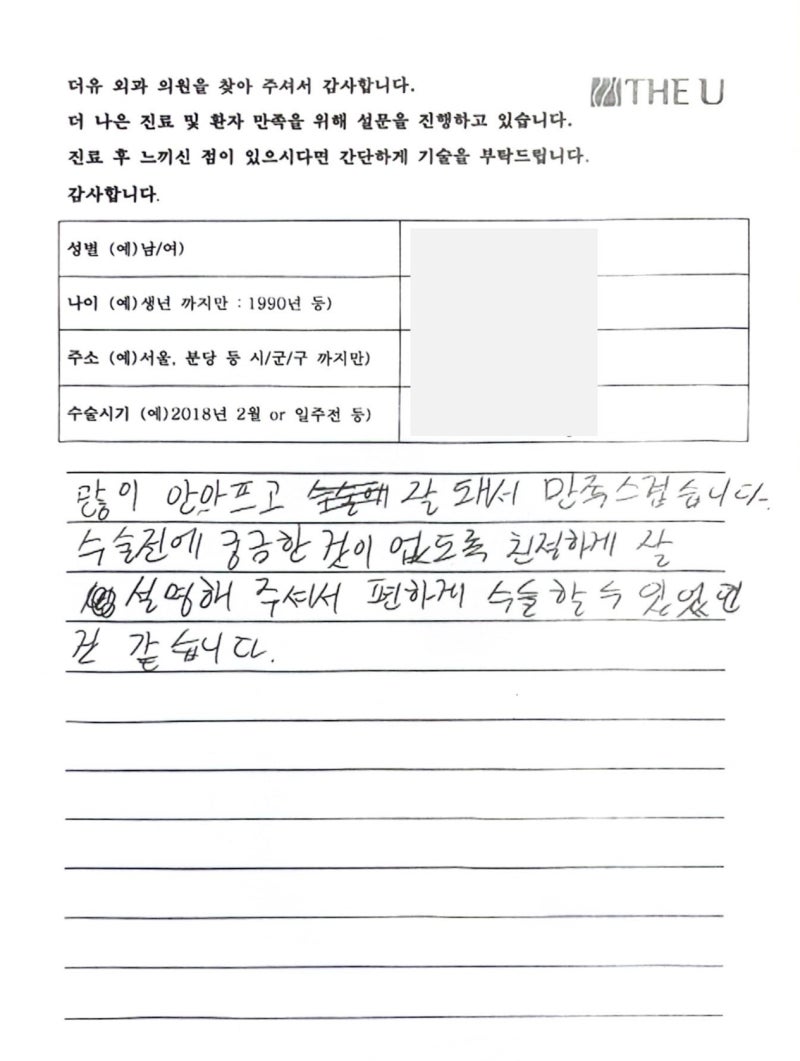 더유 외과 의원을 찾아 주셔서 감사합니다.
THE U
더 나은 진료 및 환자 만족을 위해 설문을 진행하고 있습니다.
진료 후 느끼신 점이 있으시다면 간단하게 기술을 부탁드립니다.
감사합니다.
성별 (예)남/여)
나이 (예)생년 까지만 : 1990년 등)
주소 (예)서울, 분당 등 시/군/구 까지만)
수술시기 (예)2018년 2월 or 일주전 등)
많이 안아프고 잘 돼서 만족스럽습니다.
수술전에 궁금한 것이 없도록 친절하게 잘
설명해 주셔서 편하게 수술할 수 있었던
것 같습니다.